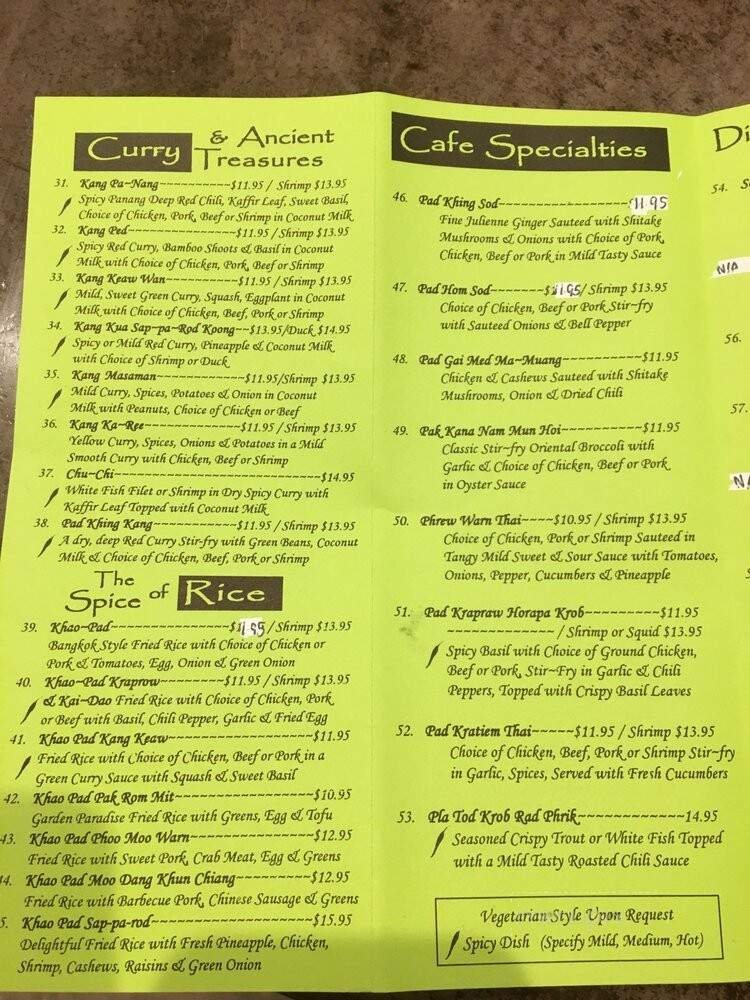 Curry & Ancient
Treasures
31. Kang Pa~Nang~~~~~~~~~~$11.95 / Shrimp $13.95
Spicy Panang Deep Red Chili, Kaffir Leaf, Sweet Basil,
Choice of Chicken, Pork, Beef or Shrimp in Coconut Milk
32. Kang Ped~~~~~~~~~~~~~~$11.95 / Shrimp $13.95
Spicy Red Curry, Bamboo Shoots & Basil in Coconut
Milk with Choice of Chicken, Pork, Beef or Shrimp
33. Kang Keaw Wan~~~~~~~~~~$11.95 / Shrimp $13.95
Mild, Sweet Green Curry, Squash, Eggplant in Coconut
Milk with Choice of Chicken, Beef, Pork or Shrimp
34. Kang Kua Sap~pa~Rod Koong~~$13.95/Duck $14.95
Spicy or Mild Red Curry, Pineapple & Coconut Milk
with Choice of Shrimp or Duck
35. Kang Masaman~~~~~~~~~~~~$11.95/Shrimp $13.95
Mild Curry, Spices, Potatoes & Onion in Coconut
Milk with Peanuts, Choice of Chicken or Beef
36. Kang Ka~Ree~~~~~~~~~~~~~$11.95 / Shrimp $13.95
Yellow Curry, Spices, Onions & Potatoes in a Mild
Smooth Curry with Chicken, Beef or Shrimp
37. Chu~Chi~~~~~~~~~~~~~~~~~~~~~~~~~~~~$14.95
White Fish Filet or Shrimp in Dry Spicy Curry with
Kaffir Leaf Topped with Coconut Milk
38. Pad Khing Kang~~~~~~~~~~~$11.95 / Shrimp $13.95
A dry, deep Red Curry Stir-fry with Green Beans, Coconut
Milk & Choice of Chicken, Beef, Pork or Shrimp
The
Spice of Rice
39. Khao~Pad~~~~~~~~~~~~~~~$11.95 / Shrimp $13.95
Bangkok Style Fried Rice with Choice of Chicken or
Pork & Tomatoes, Egg, Onion & Green Onion
40. Khao~Pad Kraprow~~~~~~~~$11.95 / Shrimp $13.95
& Kai~Dao Fried Rice with Choice of Chicken, Pork
or Beef with Basil, Chili Pepper, Garlic & Fried Egg
41. Khao Pad Kang Keaw~~~~~~~~~~~~~~~~~~~$11.95
Fried Rice with Choice of Chicken, Beef or Pork in a
Green Curry Sauce with Squash & Sweet Basil
42. Khao Pad Pak Rom Mit~~~~~~~~~~~~~~~~~~$10.95
Garden Paradise Fried Rice with Greens, Egg & Tofu
43. Khao Pad Phoo Moo Warn~~~~~~~~~~~~~~~~$12.95
Fried Rice with Sweet Pork, Crab Meat, Egg & Greens
14. Khao Pad Moo Dang Khun Chiang~~~~~~~~~$12.95
Fried Rice with Barbecue Pork, Chinese Sausage & Greens
5. Khao Pad Sap-pa-rod~~~~~~~~~~~~~~~~~~~~$15.95
Delightful Fried Rice with Fresh Pineapple, Chicken,
Shrimp, Cashews, Raisins & Green Onion
Cafe Specialties
46. Pad Khing Sod~~~~~~~~~~~~~~~~~$11.95
Fine Julienne Ginger Sauteed with Shitake
Mushrooms & Onions with Choice of Pork,
Chicken, Beef or Pork in Mild Tasty Sauce
47. Pad Hom Sod~~~~~~~$11.95/ Shrimp $13.95
Choice of Chicken, Beef or Pork Stir~fry
with Sauteed Onions & Bell Pepper
48. Pad Gai Med Ma~Muang~~~~~~~~~~$11.95
Chicken & Cashews Sauteed with Shitake
Mushrooms, Onion & Dried Chili
49. Pak Kana Nam Mun Hoi~~~~~~~~~~$11.95
Classic Stir~fry Oriental Broccoli with
Garlic & Choice of Chicken, Beef or Pork
in Oyster Sauce
50. Phrew Warn Thai~~~~$10.95 / Shrimp $13.95
Choice of Chicken, Pork or Shrimp Sauteed in
Tangy Mild Sweet & Sour Sauce with Tomatoes,
Onions, Pepper, Cucumbers & Pineapple
51. Pad Krapraw Horapa Krob~~~~~~~~~$11.95
~~~~~~~~~~~~~ / Shrimp or Squid $13.95
Spicy Basil with Choice of Ground Chicken,
Beef or Pork, Stir~Fry in Garlic & Chili
Peppers, Topped with Crispy Basil Leaves
52. Pad Kratiem Thai~~~~~$11.95 / Shrimp $13.95
Choice of Chicken, Beef, Pork or Shrimp Stir~fry
in Garlic, Spices, Served with Fresh Cucumbers
53. Pla Tod Krob Rad Phrik~~~~~~~~~~~~~14.95
Seasoned Crispy Trout or White Fish Topped
with a Mild Tasty Roasted Chili Sauce
Vegetarian Style Upon Request
Spicy Dish (Specify Mild, Medium, Hot)
Di
54. S
N/A
56.
57.